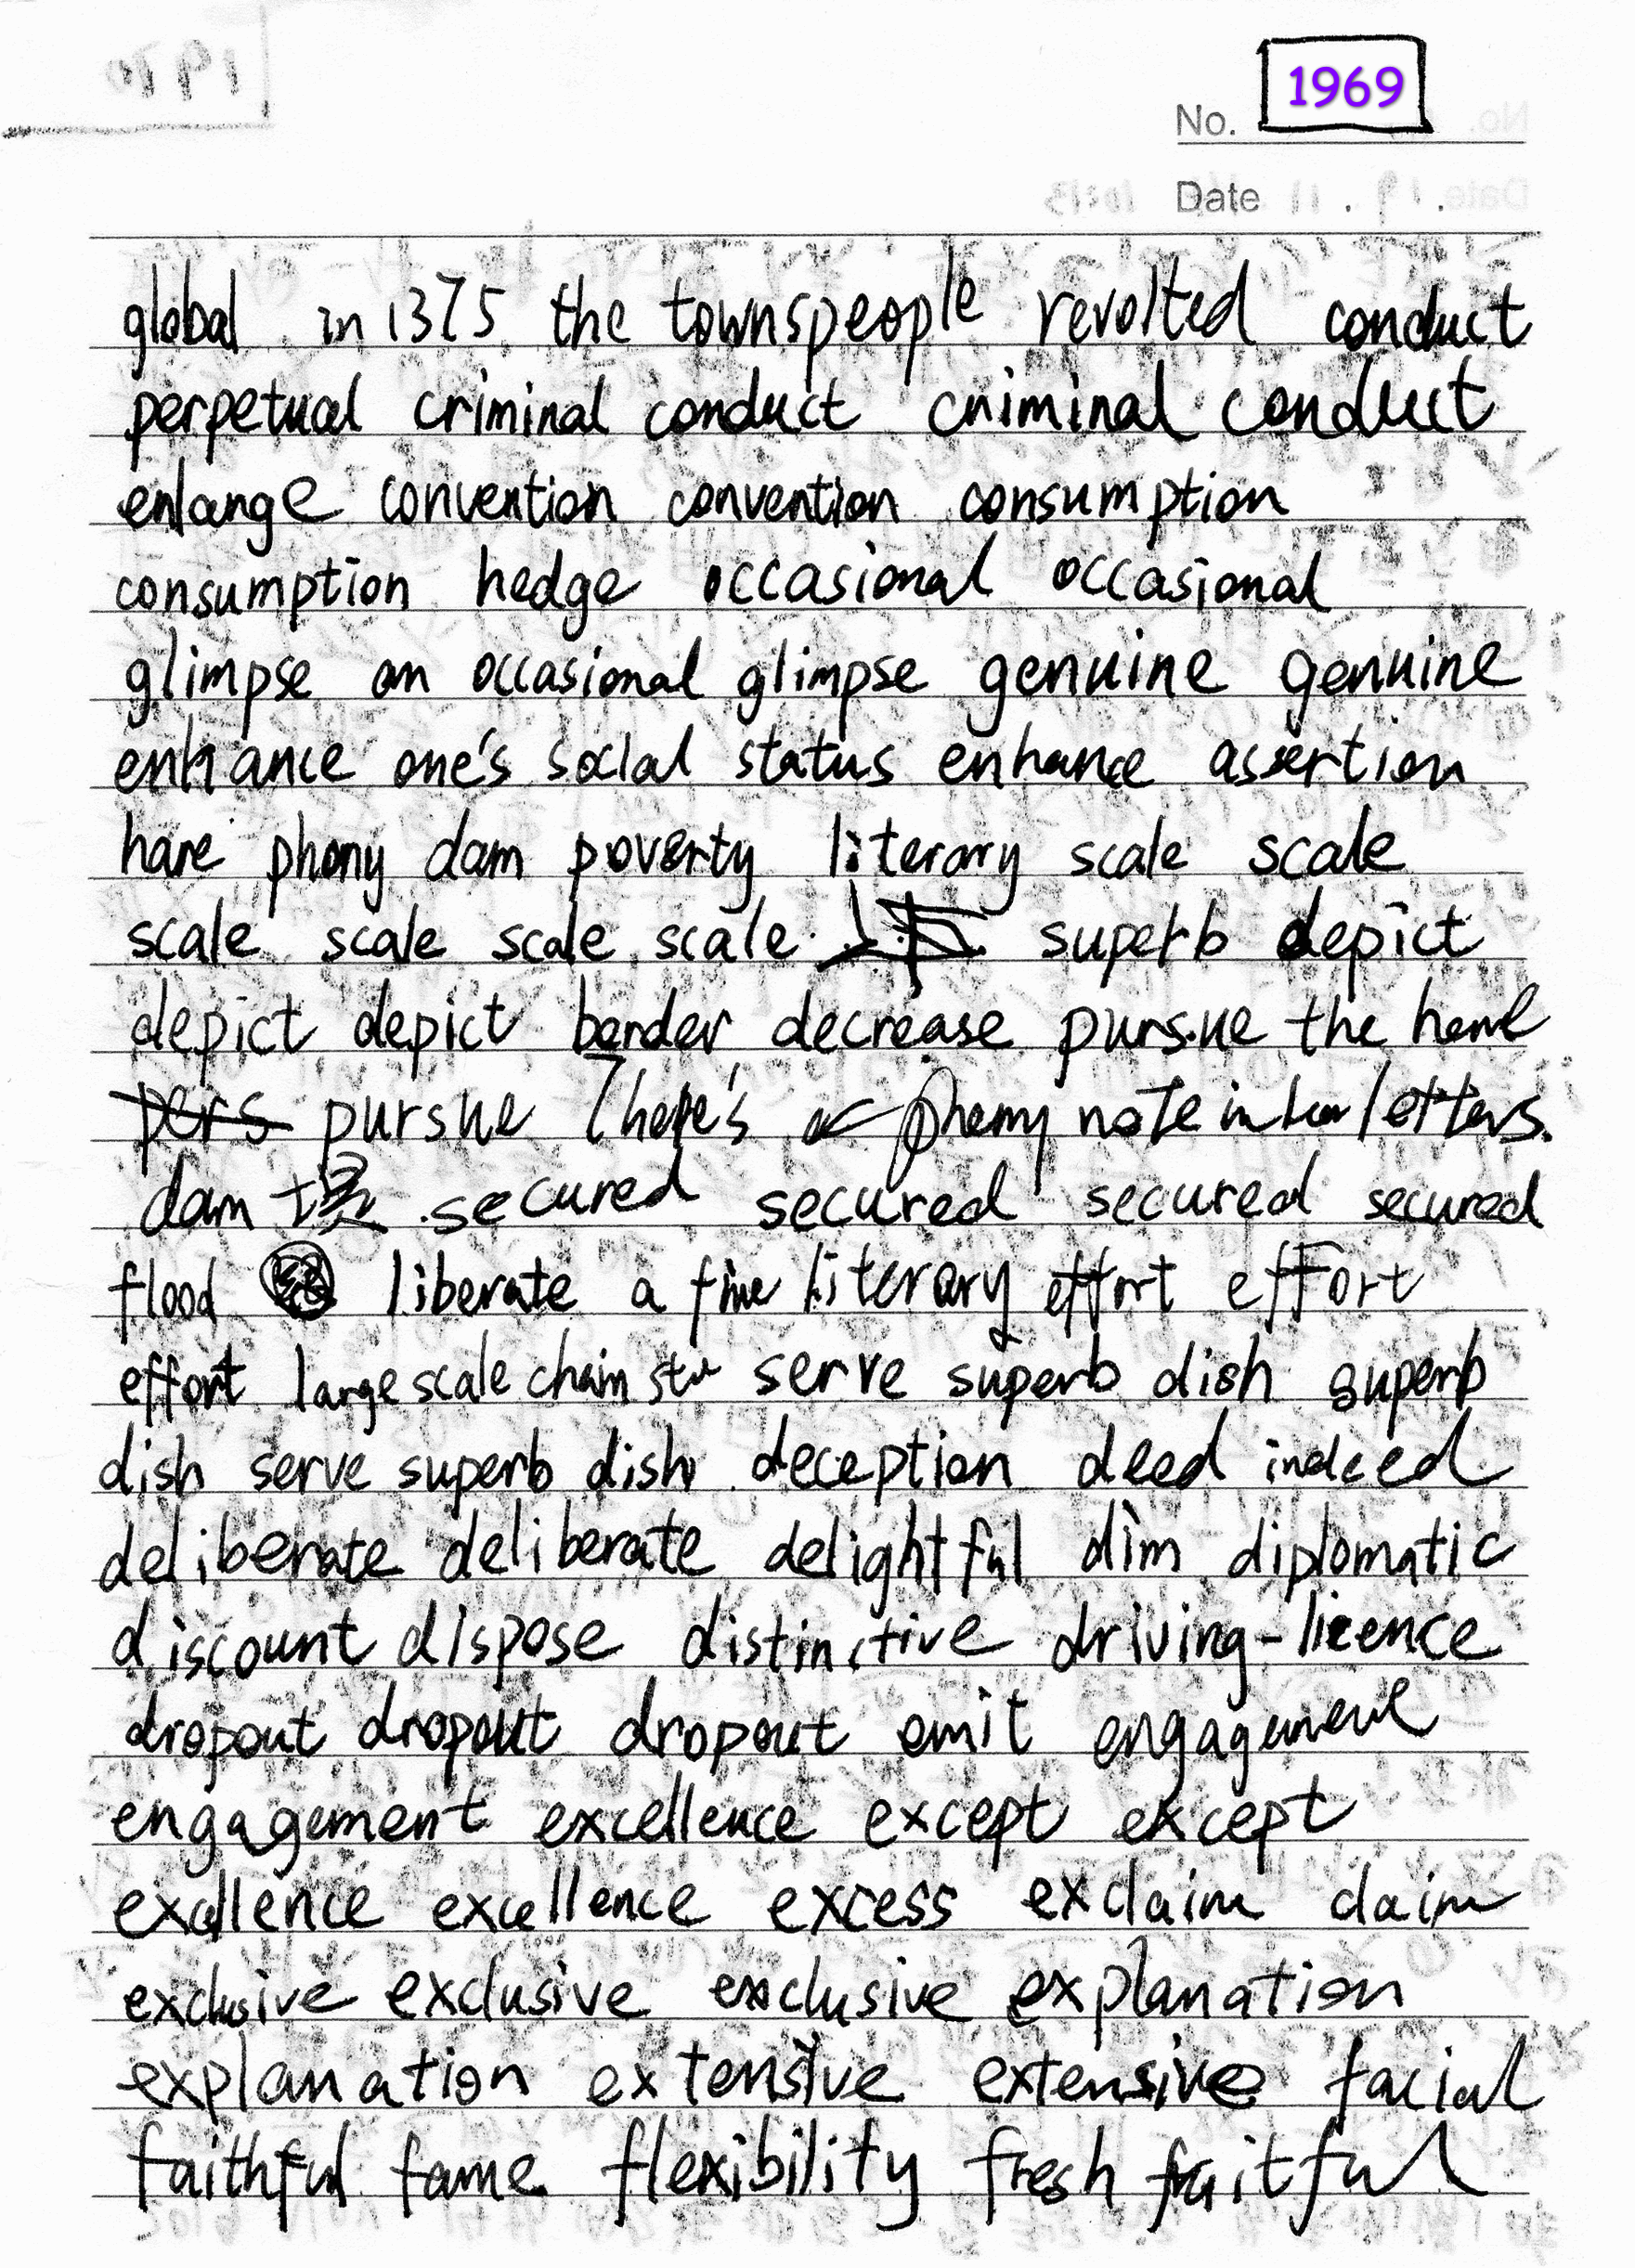 1969
No.
Date
global in 1375 the townspeople revolted conduct
perpetual criminal conduct criminal conduct
enlarge convention convention consumption
consumption hedge occasional occasional
glimpse an occasional glimpse genuine genuine
enhance one's social status enhance assertion
have phony dam poverty literary scale scale
scale scale scale scale superb depict
depict depict border decrease pursue the
pers pursue There's a phony note in her letters.
dam secured secured secured secured
flood liberate a fine literary effort effort
effort large scale chain serve superb dish superb
dish serve superb dish deception deed indeed
deliberate deliberate delightful dim diplomatic
discount dispose distinctive driving-licence
dropout dropout dropout emit engagement
engagement excellence except except
excellence excellence excess exclaim claim
exclusive exclusive exclusive explanation
explanation extensive extensive facial
faithful fame flexibility fresh fruitful